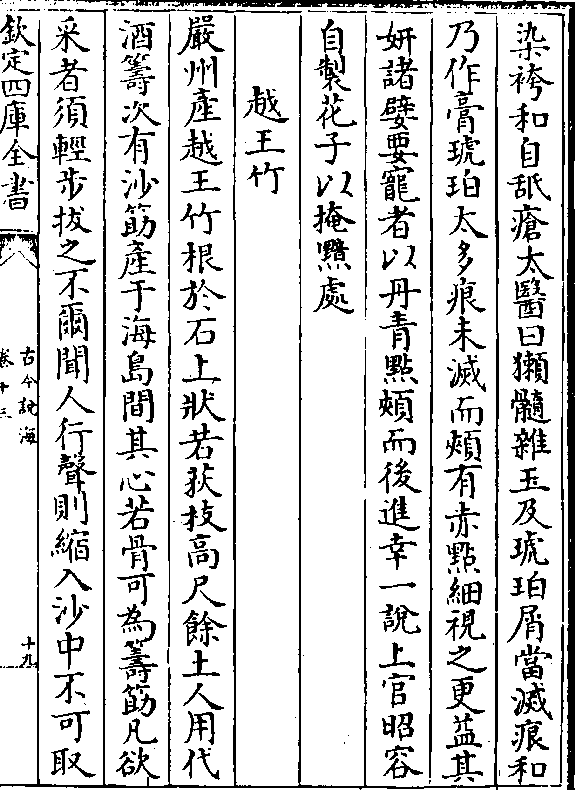 染袴和自舐瘡太醫曰獺髓雜玉及琥珀屑當滅痕和
乃作膏琥珀太多痕未滅而頰有赤點細視之更益其
妍諸嬖要寵者以丹青點頰而後進幸一說上官昭容
自製花子以掩㸃處
越王竹
嚴州產越王竹根於石上狀若荻枝高尺餘土人用代
酒籌次有沙筯產于海島間其心若骨可為籌筯凡欲
采者須輕步拔之不爾聞人行聲則縮入沙中不可取
欽定四庫全書
古今說海
卷十三
十九